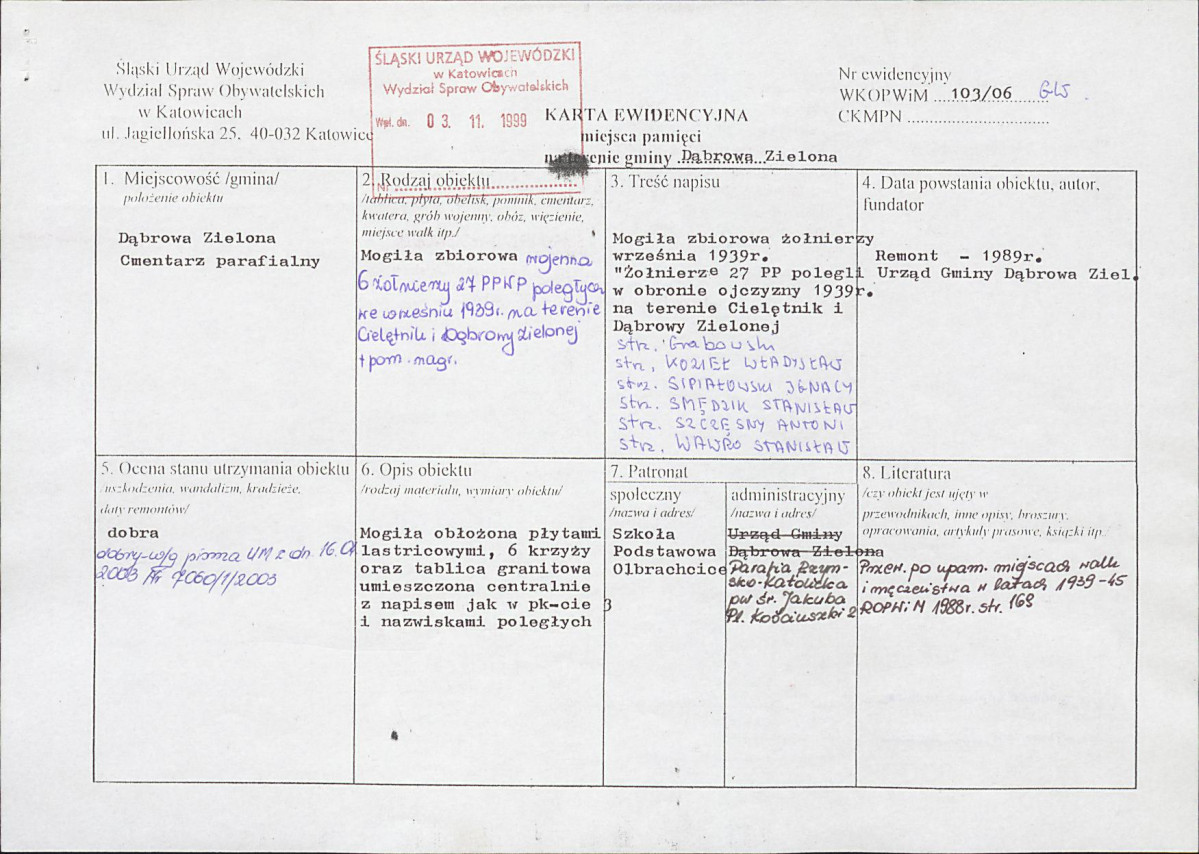 Śląski Urząd Wojewódzki
Wydział Spraw Obywatelskich
w Katowicach
ul. Jagiellońska 25, 40-032 Katowice
ŚLĄSKI URZĄD WOJEWÓDZKI
w Katowicach
Wydział Spraw Obywatelskich
Wpł. dn. 03. 11. 1999
Nr
KARTA EWIDENCYJNA
miejsca pamięci
na terenie gminy Dąbrowa Zielona
Nr ewidencyjny
WKOPWiM ...103/06...... GW
CKMPN ..............................
1. Miejscowość /gmina/
położenie obiektu
Dąbrowa Zielona
Cmentarz parafialny
2. Rodzaj obiektu
/tablica, płyta, obelisk, pomnik, cmentarz,
kwatera, grób wojenny, obóz, więzienie,
miejsce walk itp./
Mogiła zbiorowa wojenna
6 żołnierzy 27 PPWP poległych
we wrześniu 1939r. na terenie
Cielętnik i Dąbrowy Zielonej
+ pom. nagr.
3. Treść napisu
Mogiła zbiorowa żołnierzy
września 1939r.
"Żołnierze 27 PP polegli
w obronie ojczyzny 1939r.
na terenie Cielętnik i
Dąbrowy Zielonej
strz. Grabowski
strz. KOZIEŁ WŁADYSŁAW
strz. SIPIAŁOWSKI IGNACY
strz. SMĘDZIK STANISŁAW
strz. SZCZĘSNY ANTONI
strz. WAWRO STANISŁAW
4. Data powstania obiektu, autor,
fundator
Remont - 1989r.
Urząd Gminy Dąbrowa Ziel.
5. Ocena stanu utrzymania obiektu
/uszkodzenia, wandalizm, kradzieże,
daty remontów/
dobra
dobry - w/g pisma UM z dn. 16.01
2003 Nr 7060/1/2003
6. Opis obiektu
/rodzaj materiału, wymiary obiektu/
Mogiła obłożona płytami
lastricowymi, 6 krzyży
oraz tablica granitowa
umieszczona centralnie
z napisem jak w pk-cie 3
i nazwiskami poległych
7. Patronat
społeczny
/nazwa i adres/
Szkoła
Podstawowa
Olbrachcice
administracyjny
/nazwa i adres/
Urząd Gminy
Dąbrowa Zielona
Parafia Rzym-
sko-Katolicka
pw św. Jakuba
Pl. Kościuszki 2
8. Literatura
/czy obiekt jest ujęty w
przewodnikach, inne opisy, broszury,
opracowania, artykuły prasowe, książki itp./
Przew. po upam. miejscach walk
i męczeństwa w latach 1939-45
ROPWiM 1988r. str. 168